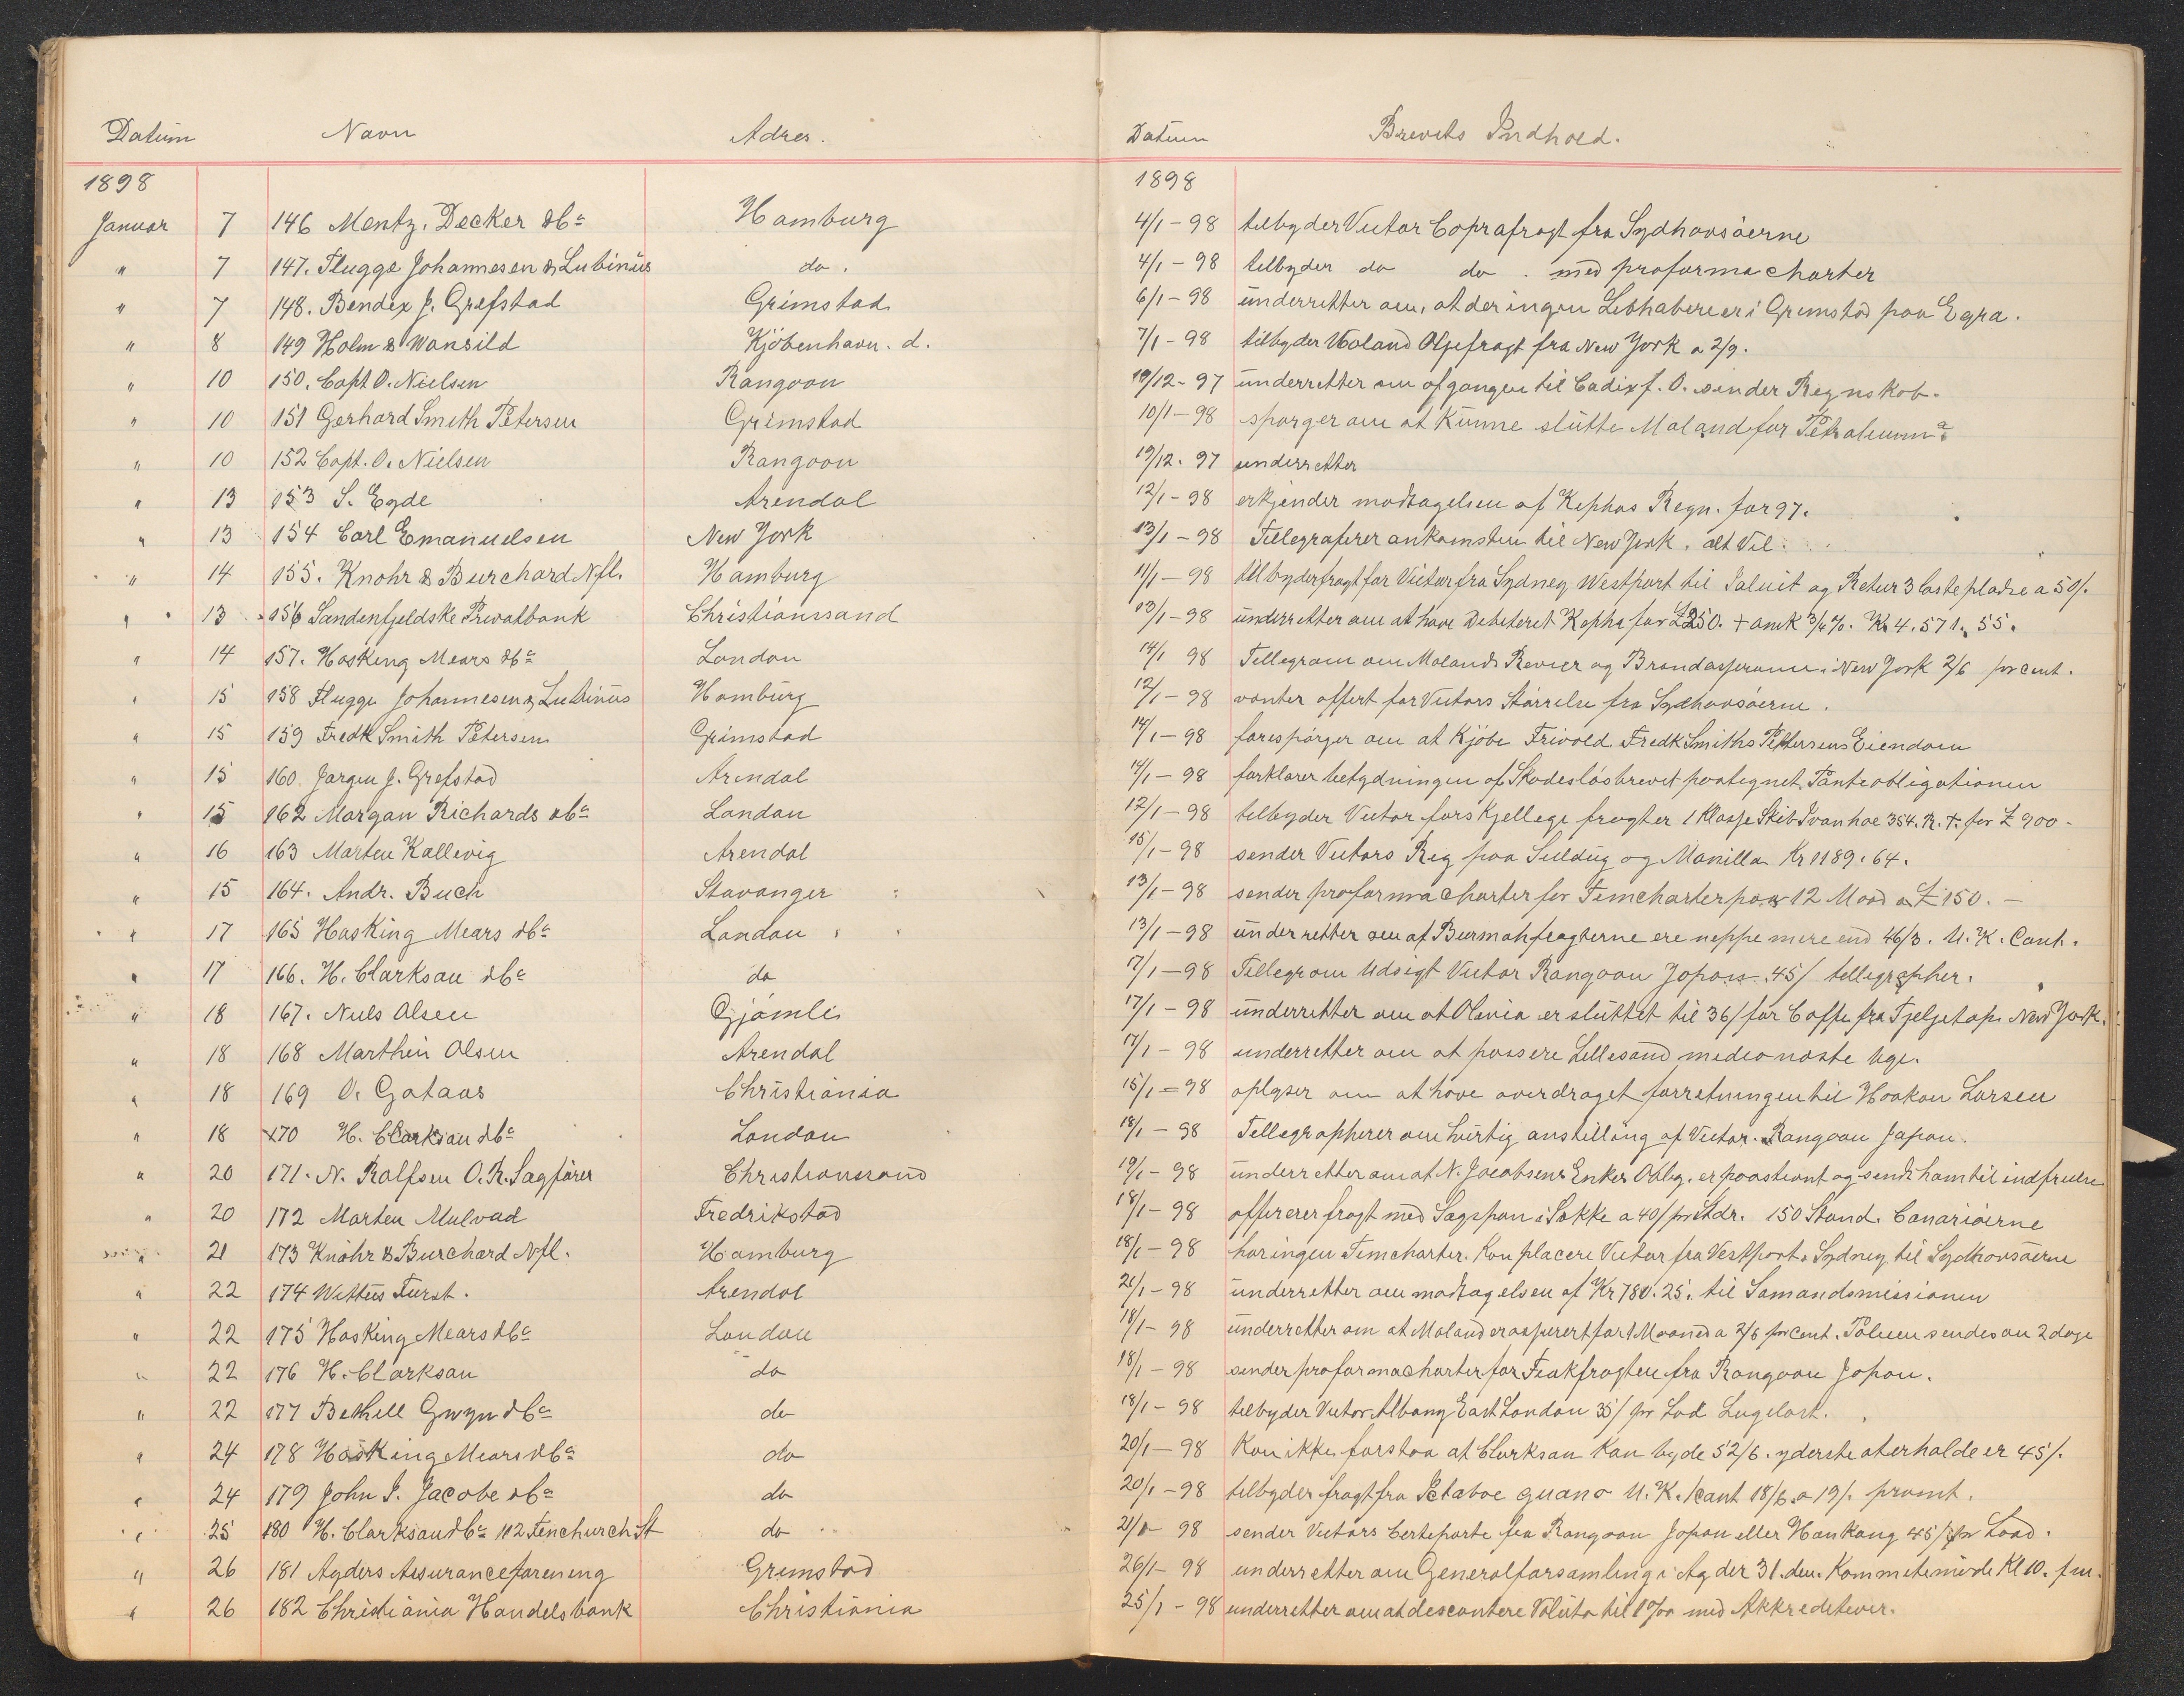 Datum Navn Adres. Datum Brevets Indhold.
1898 1898
Januar 7 146 Mentz, Decker & Co Hamburg 4/1-98 tilbyder Victor Coprafragt fra Sydhavsöerne
" 7 147. Flugge Johannesen & Lubinus do. 4/1-98 tilbyder do do. med proforma charter
" 7 148. Bendix J. Grefstad Grimstad 6/1-98 underretter om, at der ingen Lebhabere er i Grimstad paa Egra.
" 8 149 Holm & Wonsild Kjöbenhavn. d. 7/1-98 tilbyder Moland Oljefragt fra New York a 2/9.
" 10 150. Capt O. Nielsen Rangoon 19/12-97 underretter om afgangen til Cadix f. O. sender Regnskab.
" 10 151 Gerhard Smith Petersen Grimstad 10/1-98 sporger om at kunne slutte Moland for Petroleum
" 10 152 Capt. O. Nielsen Rangoon 19/12. 97 underretter
" 13 153 S. Eyde Arendal 12/1-98 erkjender modtagelsen af Kephas Regn. for 97.
" 13 154 Carl Emanuelsen New York 13/1-98 Tellegraferer ankomsten til New York. alt Vel.
" 14 155. Knohr & Burchard Nfl. Hamburg 11/1-98 tilbyder fragt for Victor fra Sydney Westport til Jaluit og Retur 3 lastepladse a 50/.
" 13 156 Söndenfjeldske Privatbank Christianssand 13/1-98 underretter om at have Debiteret Kepha for £250. + amk 3/4 %. Kr 4.571. 55.
" 14 157. Hosking Mears & Co London 14/1 98 Tellegram om Molands Revier og Brandassurance i New York 2/6 pr cent.
" 15 158 Flugge Johannesen & Lubinus Hamburg 12/1-98 venter offert for Victors Störrelse fra Sydhavsöerne.
" 15 159 Fredk Smith Petersen Grimstad 14/1-98 forespörger om at Kjöbe Frivold Fredk Smiths Pettersens Eiendom
" 15 160. Jörgen J. Grefstad Arendal 14/1-98 forklarer betydningen af Skadeslösbrevet paategnet Panteobligationen
" 15 162 Morgan Richards & Co London 12/1-98 tilbyder Victor forskjellige fragter 1 Klasse Skib Ivanhoe 354. R. T. for £ 900-
" 16 163 Morten Kallevig Arendal 15/1-98 sender Victors Reg paa Seildug og Manilla Kr 1189. 64.
" 15 164. Andr. Buch Stavanger 13/1-98 sender proformacharter for Timcharter paa 12 Maad a £150.-
" 17 165 Hosking Mears & Co London 13/1-98 underretter om at Burmahfragterne ere neppe mere end 46/3. U. K. Cont.
" 17 166. H. Clarkson & Co do 17/1-98 Tellegram Udsigt Victor Rangoon Japan 45/ tellegrapher.
" 18 167. Niels Olsen Gjömle 17/1-98 underretter om at Olivia er sluttet til 36/ for Coffe fra New York.
" 18 168 Marthin Olsen Arendal 17/1-98 underretter om at passere Lillesand medio naste Uge.
" 18 169 O. Gataas Christiania 15/1-98 oplyser om at have overdraget forretningen til Haakon Larsen
" 18 170 H. Clarkson & Co London 18/1-98 Tellegrapherer om hurtig anstilling af Victor. Rangoon Japan.
" 20 171. N. Rolfsen O. R. Sagförer Christianssand 19/1-98 underretter om at N. Jacobsens Enkes Oblg. er paastevnt og sendt ham til indfrielse
" 20 172 Morten Mulvad Fredrikstad 18/1-98 offererer fragt med Sagspon i Sekke a 40/ pr Stdr. 150 Stand. Canariöerne
" 21 173 Knöhr & Burchard Nfl. Hamburg 18/1-98 har ingen Timcharter. Kan placere Victor fra Vestport. Sydney til Sydhavsöerne
" 22 174 Wittus Furst. Arendal 21/1-98 underretter om modtagelsen af Kr 780. 25. til Sömandsmissionen
" 22 175 Hosking Mears & Co London 18/1-98 underretter om at Moland er assurert for 1 Maaned a 2/6 pr cent. Polisen sendes om 2 dage
" 22 176 H. Clarkson do 18/1-98 sender proformacharter for Teakfragten fra Rangoon Japan.
" 22 177 Bethell Gwyn & Co do 18/1-98 tilbyder Victor Albany East London 35/ pr Lod
" 24 178 Hosking Mears & Co do 20/1-98 Kan ikke forstaa at Clarkson kan byde 52/6. yderste at erholde er 45/.
" 24 179 John I. Jacobe & Co do 20/1-98 tilbyder fragt fra guano U. K. /cont 18/6 a 19/. promt.
" 25 180 H. Clarkson & Co 112 Fenchurch St do 21/1-98 sender Victors Certeparte fra Rangoon Japan eller Honkong 45/ pr Load.
" 26 181 Agders Assuranceforening Grimstad 26/1-98 underretter om Generalforsamling i Agder 31. den. Kommitemöde Kl 10. fm.
" 26 182 Christiania Handelsbank Christiania 25/1-98 underretter om at descontere Valuta til 1 %o med Akkreditever.